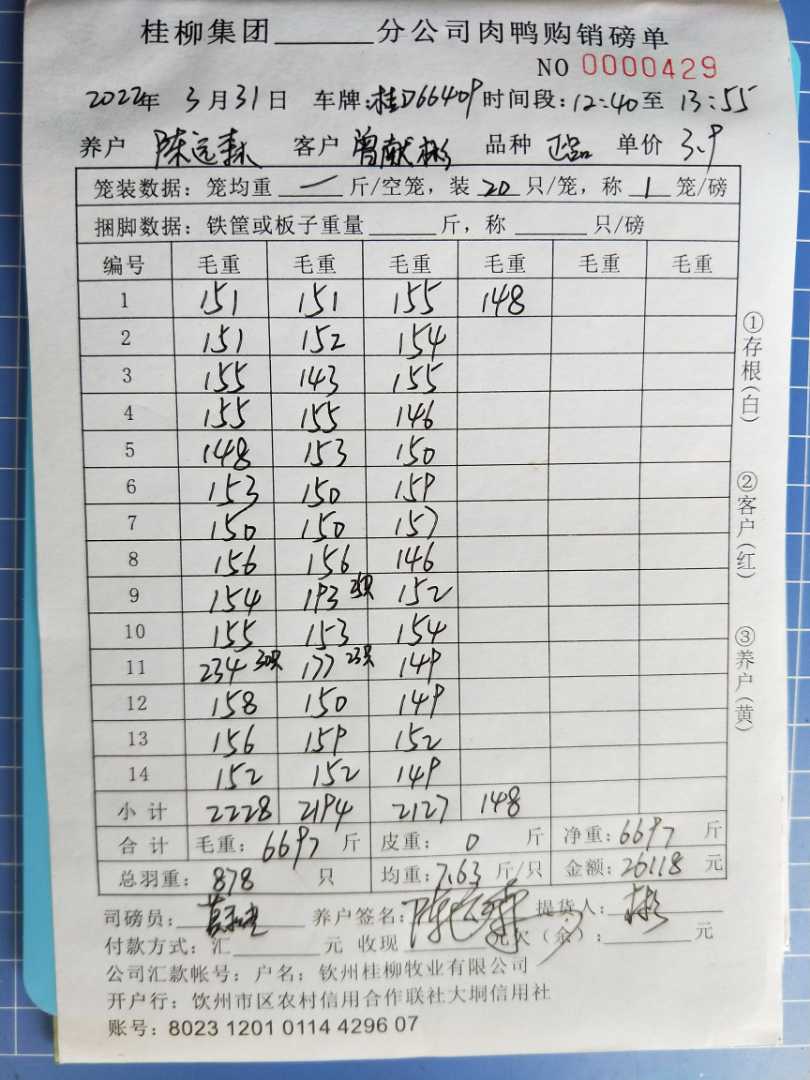 桂柳集团______分公司肉鸭购销磅单
NO 0000429
2022年 3月31日 车牌:桂D66409 时间段:12:40至 13:55
养户 陈远森 客户 曾献彬 品种 正品 单价 3.9
笼装数据:笼均重 一 斤/空笼,装 20 只/笼,称 1 笼/磅
捆脚数据:铁筐或板子重量______斤,称______只/磅
编号 毛重 毛重 毛重 毛重 毛重 毛重
1 151 151 155 148
2 151 152 154
3 155 143 155
4 155 155 146
5 148 153 150
6 153 150 159
7 150 150 157
8 156 156 146
9 154 193 只 152
10 155 153 154
11 234 30只 177 23只 149
12 158 150 149
13 156 159 152
14 152 152 149
小计 2228 2194 2127 148
合计 毛重:6697 斤 皮重: 0 斤 净重:6697 斤
总羽重: 878 只 均重:7.63 斤/只 金额:26118 元
司磅员: 养户签名: 提货人: 彬
付款方式:汇______元 收现 元欠(余):______元
公司汇款帐号:户名:钦州桂柳牧业有限公司
开户行:饮州市区农村信用合作联社大垌信用社
账号:8023 1201 0114 4296 07
①存根(白)
②客户(红)
③养户(黄)